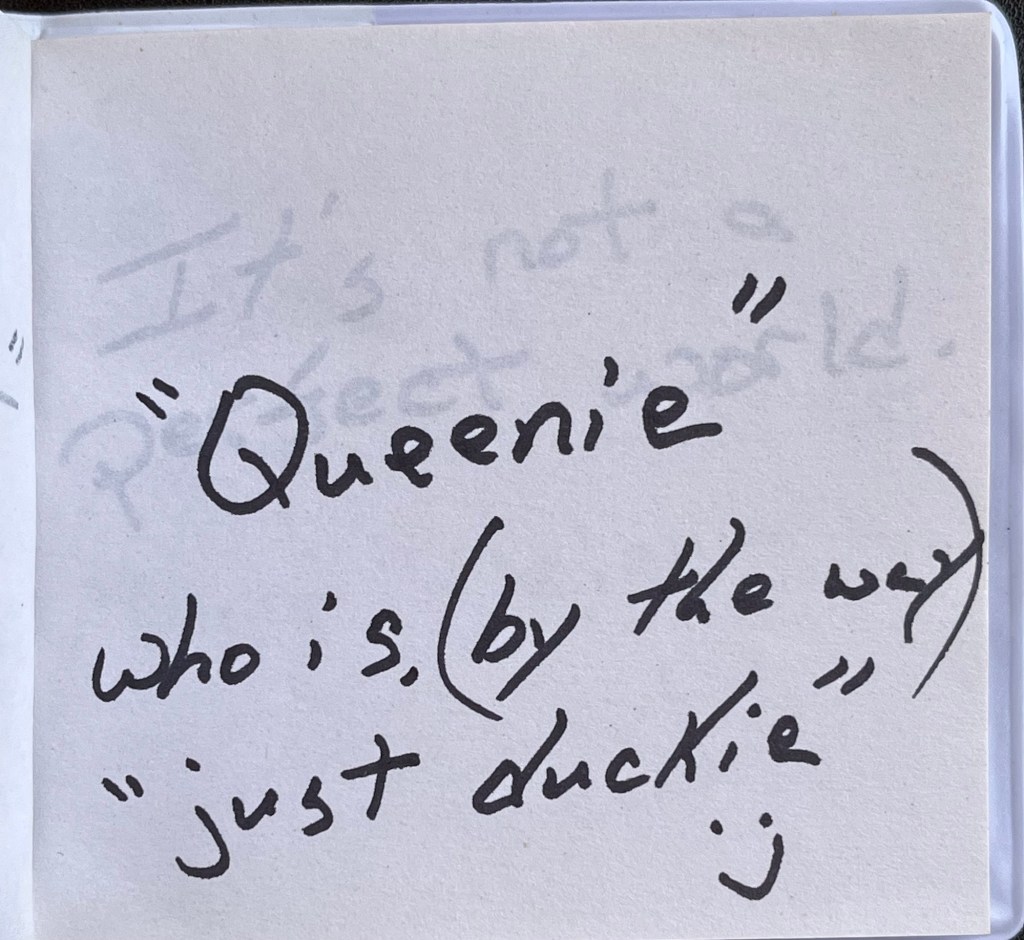 It's not a
perfect world.
"Queenie"
who is, (by the way)
"just duckie"